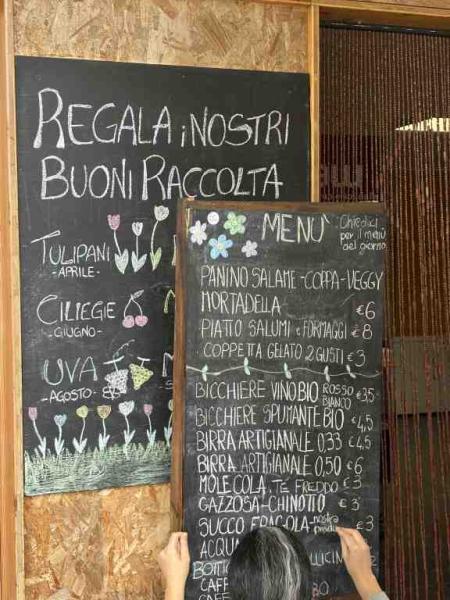 REGALA i NOSTRI
BUONI RACCOLTA
TULIPANI
-APRILE-
CILIEGIE
-GIUGNO-
UVA
-AGOSTO-
MENU'
Chiedici
per il menù
del giorno
PANINO SALAME-COPPA-VEGGY
MORTADELLA €6
PIATTO SALUMI e FORMAGGI €8
COPPETTA GELATO 2 GUSTI €3
BICCHIERE VINO BIO ROSSO BIANCO €3,5
BICCHIERE SPUMANTE BIO €4,5
BIRRA ARTIGIANALE 0,33 €4,5
BIRRA ARTIGIANALE 0,50 €6
MOLE COLA, TÉ FREDDO €3
GAZZOSA-CHINOTTO €3
SUCCO FRAGOLA-nostra €3
ACQUA
CAFF